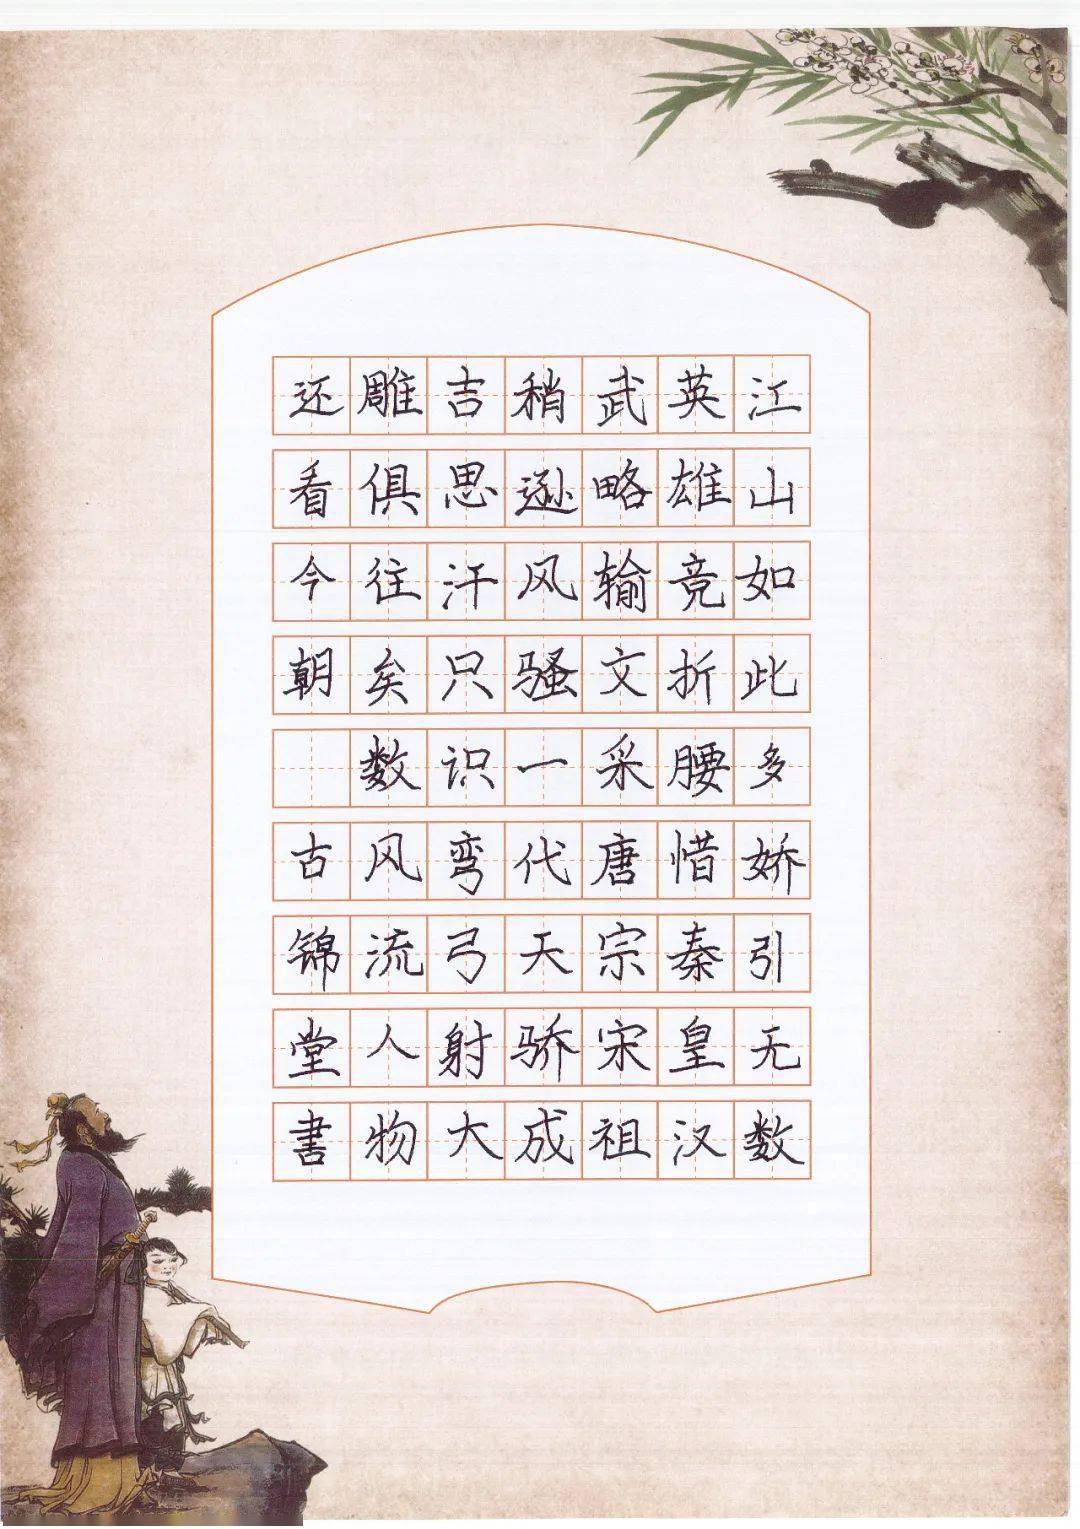 江山如此多娇引无数
英雄竞折腰惜秦皇汉
武略输文采唐宗宋祖
稍逊风骚一代天骄成
吉思汗只识弯弓射大
雕俱往矣数风流人物
还看今朝 古锦堂書